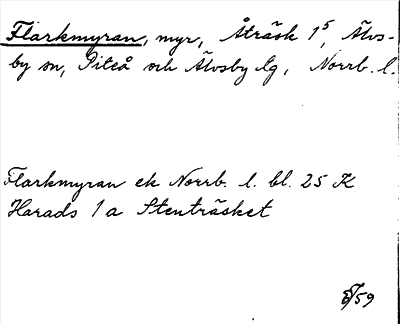 Flarkmyran, myr, Åträsk 1⁵, Älvs-
by sn, Piteå och Älvsby tg, Norrb. l.
Flarkmyran ek Norrb. l. bl. 25 K
Harads 1 a Stenträsket
/59